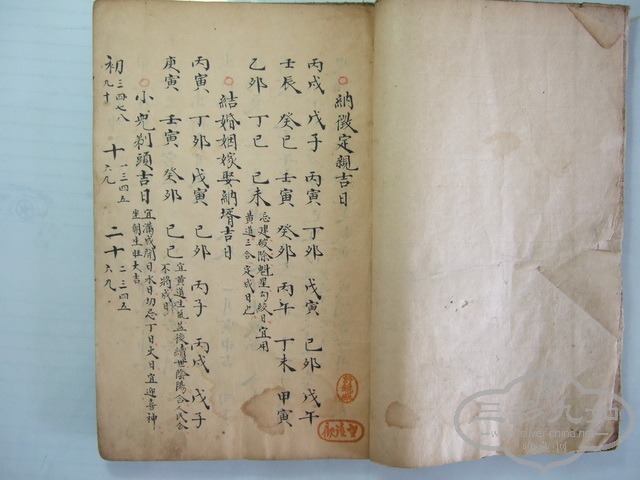 納徵定親吉日
丙戌 戊子 丙寅 丁夘 戊寅 己夘 戊午
壬辰 癸巳 壬寅 癸夘 丙午 丁未 甲寅
乙夘 丁巳 己未 忌建破除魁罡勾絞日宜用
黃道三合定成日
結婚姻嫁娶納壻吉日
丙寅 丁夘 戊寅 己夘 丙子 丙戌 戊子
庚寅 壬寅 癸夘 己巳 宜黃道生氣益後續世陰陽合人民合
不將成日
小兒剃頭吉日 宜滿成開日水日切忌丁日火日宜迎喜神
生旺大吉
初 三四七八 十 一三四五 二十 二三四五
九十 六九 六九